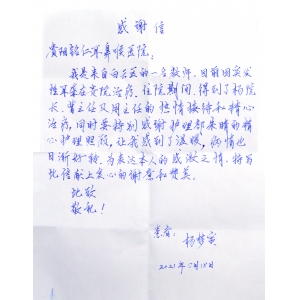 感谢信
贵阳铭仁耳鼻喉医院:
我是来自白云区的一名教师。目前因突发
性耳聋在贵院治疗。住院期间,得到了杨院
长、曾主任及周主任的热情接待和精心
治疗,同时要特别感谢护理部的精
心护理照顾,让我感到了温暖,病情也
日渐好转。为表达本人的感激之情,特写
此信献上衷心的谢意和赞美。
此致
敬礼!
患者:
杨梦寅
2021年